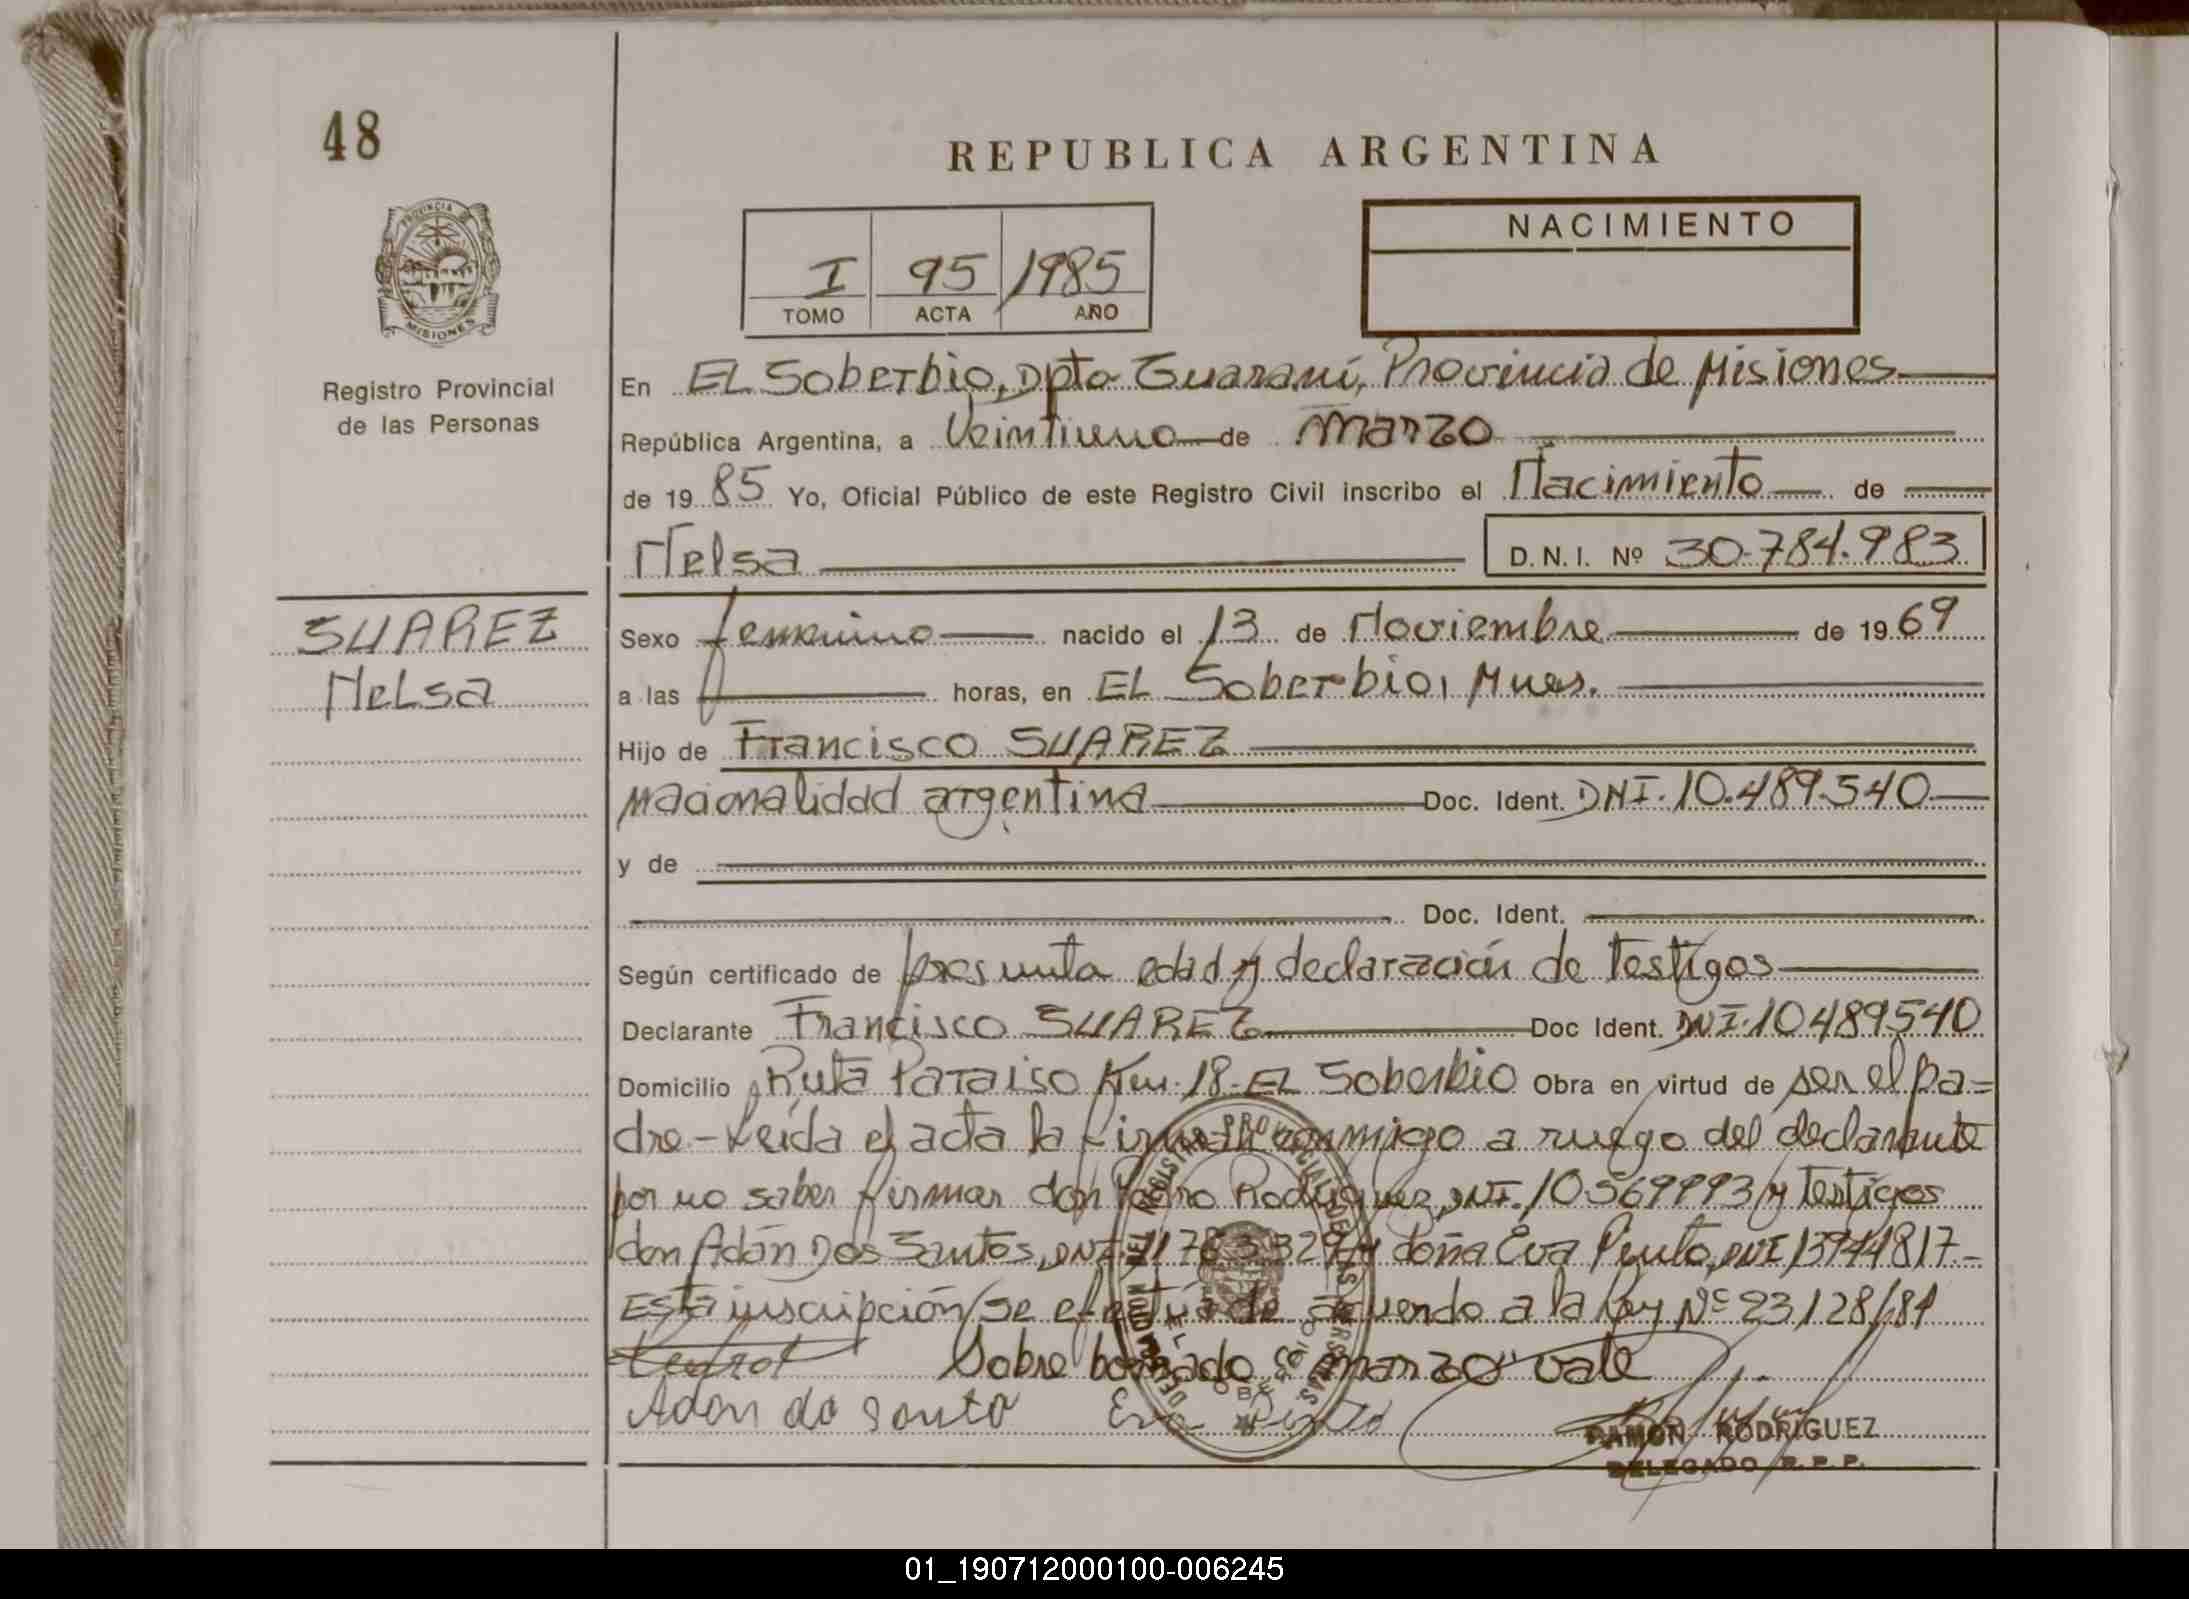 48
REPUBLICA ARGENTINA
PROVINCIA DE
MISIONES
Registro Provincial
de las Personas
I 95 1985
TOMO ACTA AÑO
NACIMIENTO
En EL Soberbio, Dpto Guaraní, Provincia de Misiones
República Argentina, a Veintiuno de Marzo
de 1985 Yo, Oficial Público de este Registro Civil inscribo el Nacimiento de
Nelsa D.N.I. Nº 30.784.983
SUAREZ
Nelsa
Sexo femenino nacido el 13 de Noviembre de 1969
a las horas, en EL Soberbio, Mnes.
Hijo de Francisco SUAREZ
nacionalidad argentina Doc. Ident. DNI. 10.489.540
y de
Doc. Ident.
Según certificado de presunta edad y declaración de testigos
Declarante Francisco SUAREZ Doc Ident. DNI. 10489540
Domicilio Ruta Paraiso Km. 18 - EL Soberbio Obra en virtud de ser el pa=
dre - Leída el acta la firman conmigo a ruego del declarante
por no saber firmar don Rodriguez, DNI. 10569993 y testigos
don Adán Dos Santos, DNI. y doña Eva Pinto, DNI 13944817.-
Esta inscripción se efectúa de acuerdo a la Ley Nº 23128/84
Sobre borrado "marzo" vale
Adan do Santo Eva Pinto
RAMON RODRIGUEZ
DELEGADO R.P.P.
01_190712000100-006245